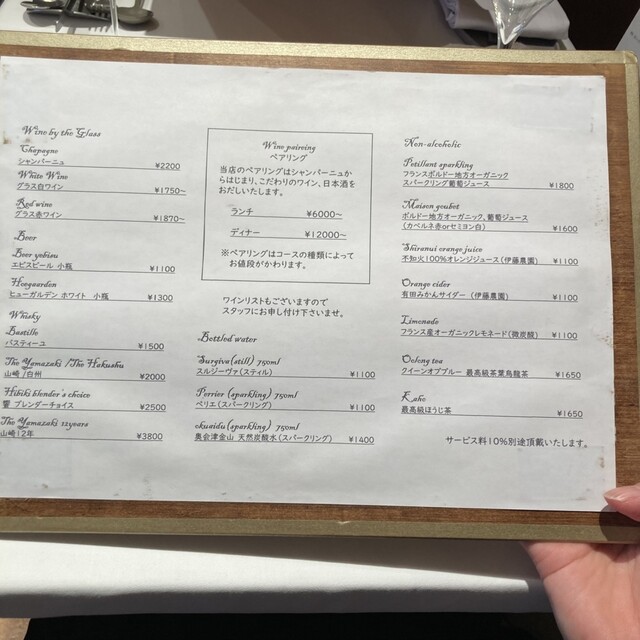 Wine by the Glass
Chapagne
シャンパーニュ ¥2200
White Wine
グラス白ワイン ¥1750~
Red wine
グラス赤ワイン ¥1870~
Beer
Beer yebisu
エビスビール 小瓶 ¥1100
Hoegaarden
ヒューガルデン ホワイト 小瓶 ¥1300
Whisky
Bastille
バスティーユ ¥1500
The Yamazaki /The Hakushu
山崎/白州 ¥2000
Hibiki blender's choice
響 ブレンダーチョイス ¥2500
The Yamazaki 12years
山崎12年 ¥3800
Wine paireing
ペアリング
当店のペアリングはシャンパーニュか
らはじまり、こだわりのワイン、日本酒を
おだしいたします。
ランチ ¥6000~
ディナー ¥12000~
※ペアリングはコースの種類によって
お値段がかわります。
ワインリストもございますので
スタッフにお申し付け下さいませ。
Bottled water
Surgiva(still) 750ml
スルジーヴァ(スティル) ¥1100
Perrier (sparkling) 750ml
ペリエ(スパークリング) ¥1100
okuaidu(sparkling) 750ml
奥会津金山 天然炭酸水(スパークリング) ¥1400
Non-alcoholic
Petillant sparkling
フランスボルドー地方オーガニック
スパークリング葡萄ジュース ¥1800
Maison goubet
ボルドー地方オーガニック、葡萄ジュース
(カベルネ赤orセミヨン白) ¥1600
Shiranui orange juice
不知火100%オレンジジュース(伊藤農園) ¥1100
Orange cider
有田みかんサイダー (伊藤農園) ¥1100
Limonade
フランス産オーガニックレモネード(微炭酸) ¥1100
Oolong tea
クイーンオブブルー 最高級茶葉烏龍茶 ¥1650
Kaho
最高級ほうじ茶 ¥1650
サービス料10%別途頂戴いたします。